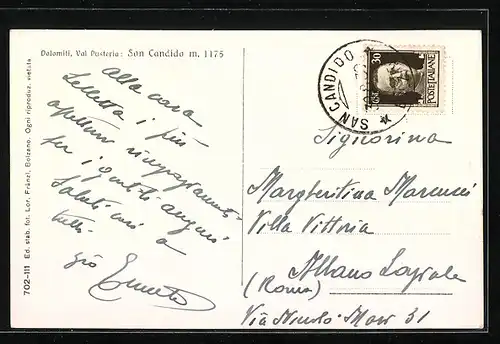 Dolomiti, Val Pusteria: San Candido m. 1175
Alla cara
Lelletta i più
affettuosi ringraziamenti
per i graditi auguri
Saluti cari a
tutti
zio Ernesto
702-111 Ed. stab. fot. Lor. Fränzl, Bolzano. Ogni riproduz. vietata
SAN CANDIDO
30
POSTE ITALIANE
Signorina
Margheritina Marcucci
Villa Vittoria
Albano Laziale
(Roma)
Via 31